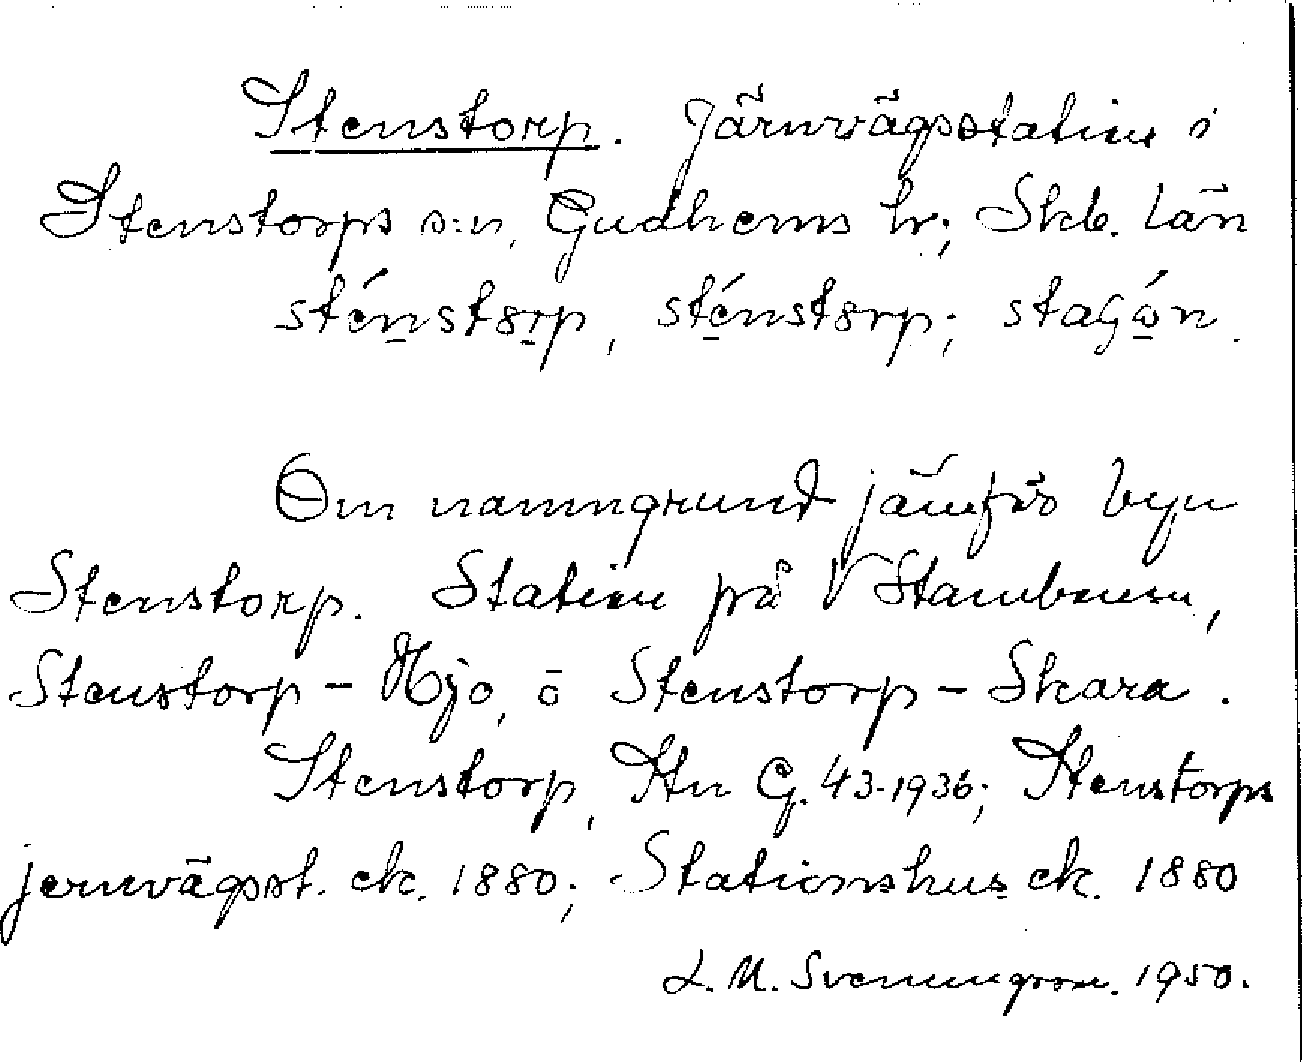 Stenstorp. Järnvägsstation i
Stenstorps s:n, Gudhems hr; Skb. län
sténstorp, sténstorp; staɕón.
Om namngrund jämför byn
Stenstorp. Station på V Stambanan,
Stenstorp - Hjo, o Stenstorp - Skara.
Stenstorp, Stn G. 43-1936; Stenstorps
jernvägsst. ek. 1880; Stationshus ek. 1880
L. M. Svenungsson. 1950.